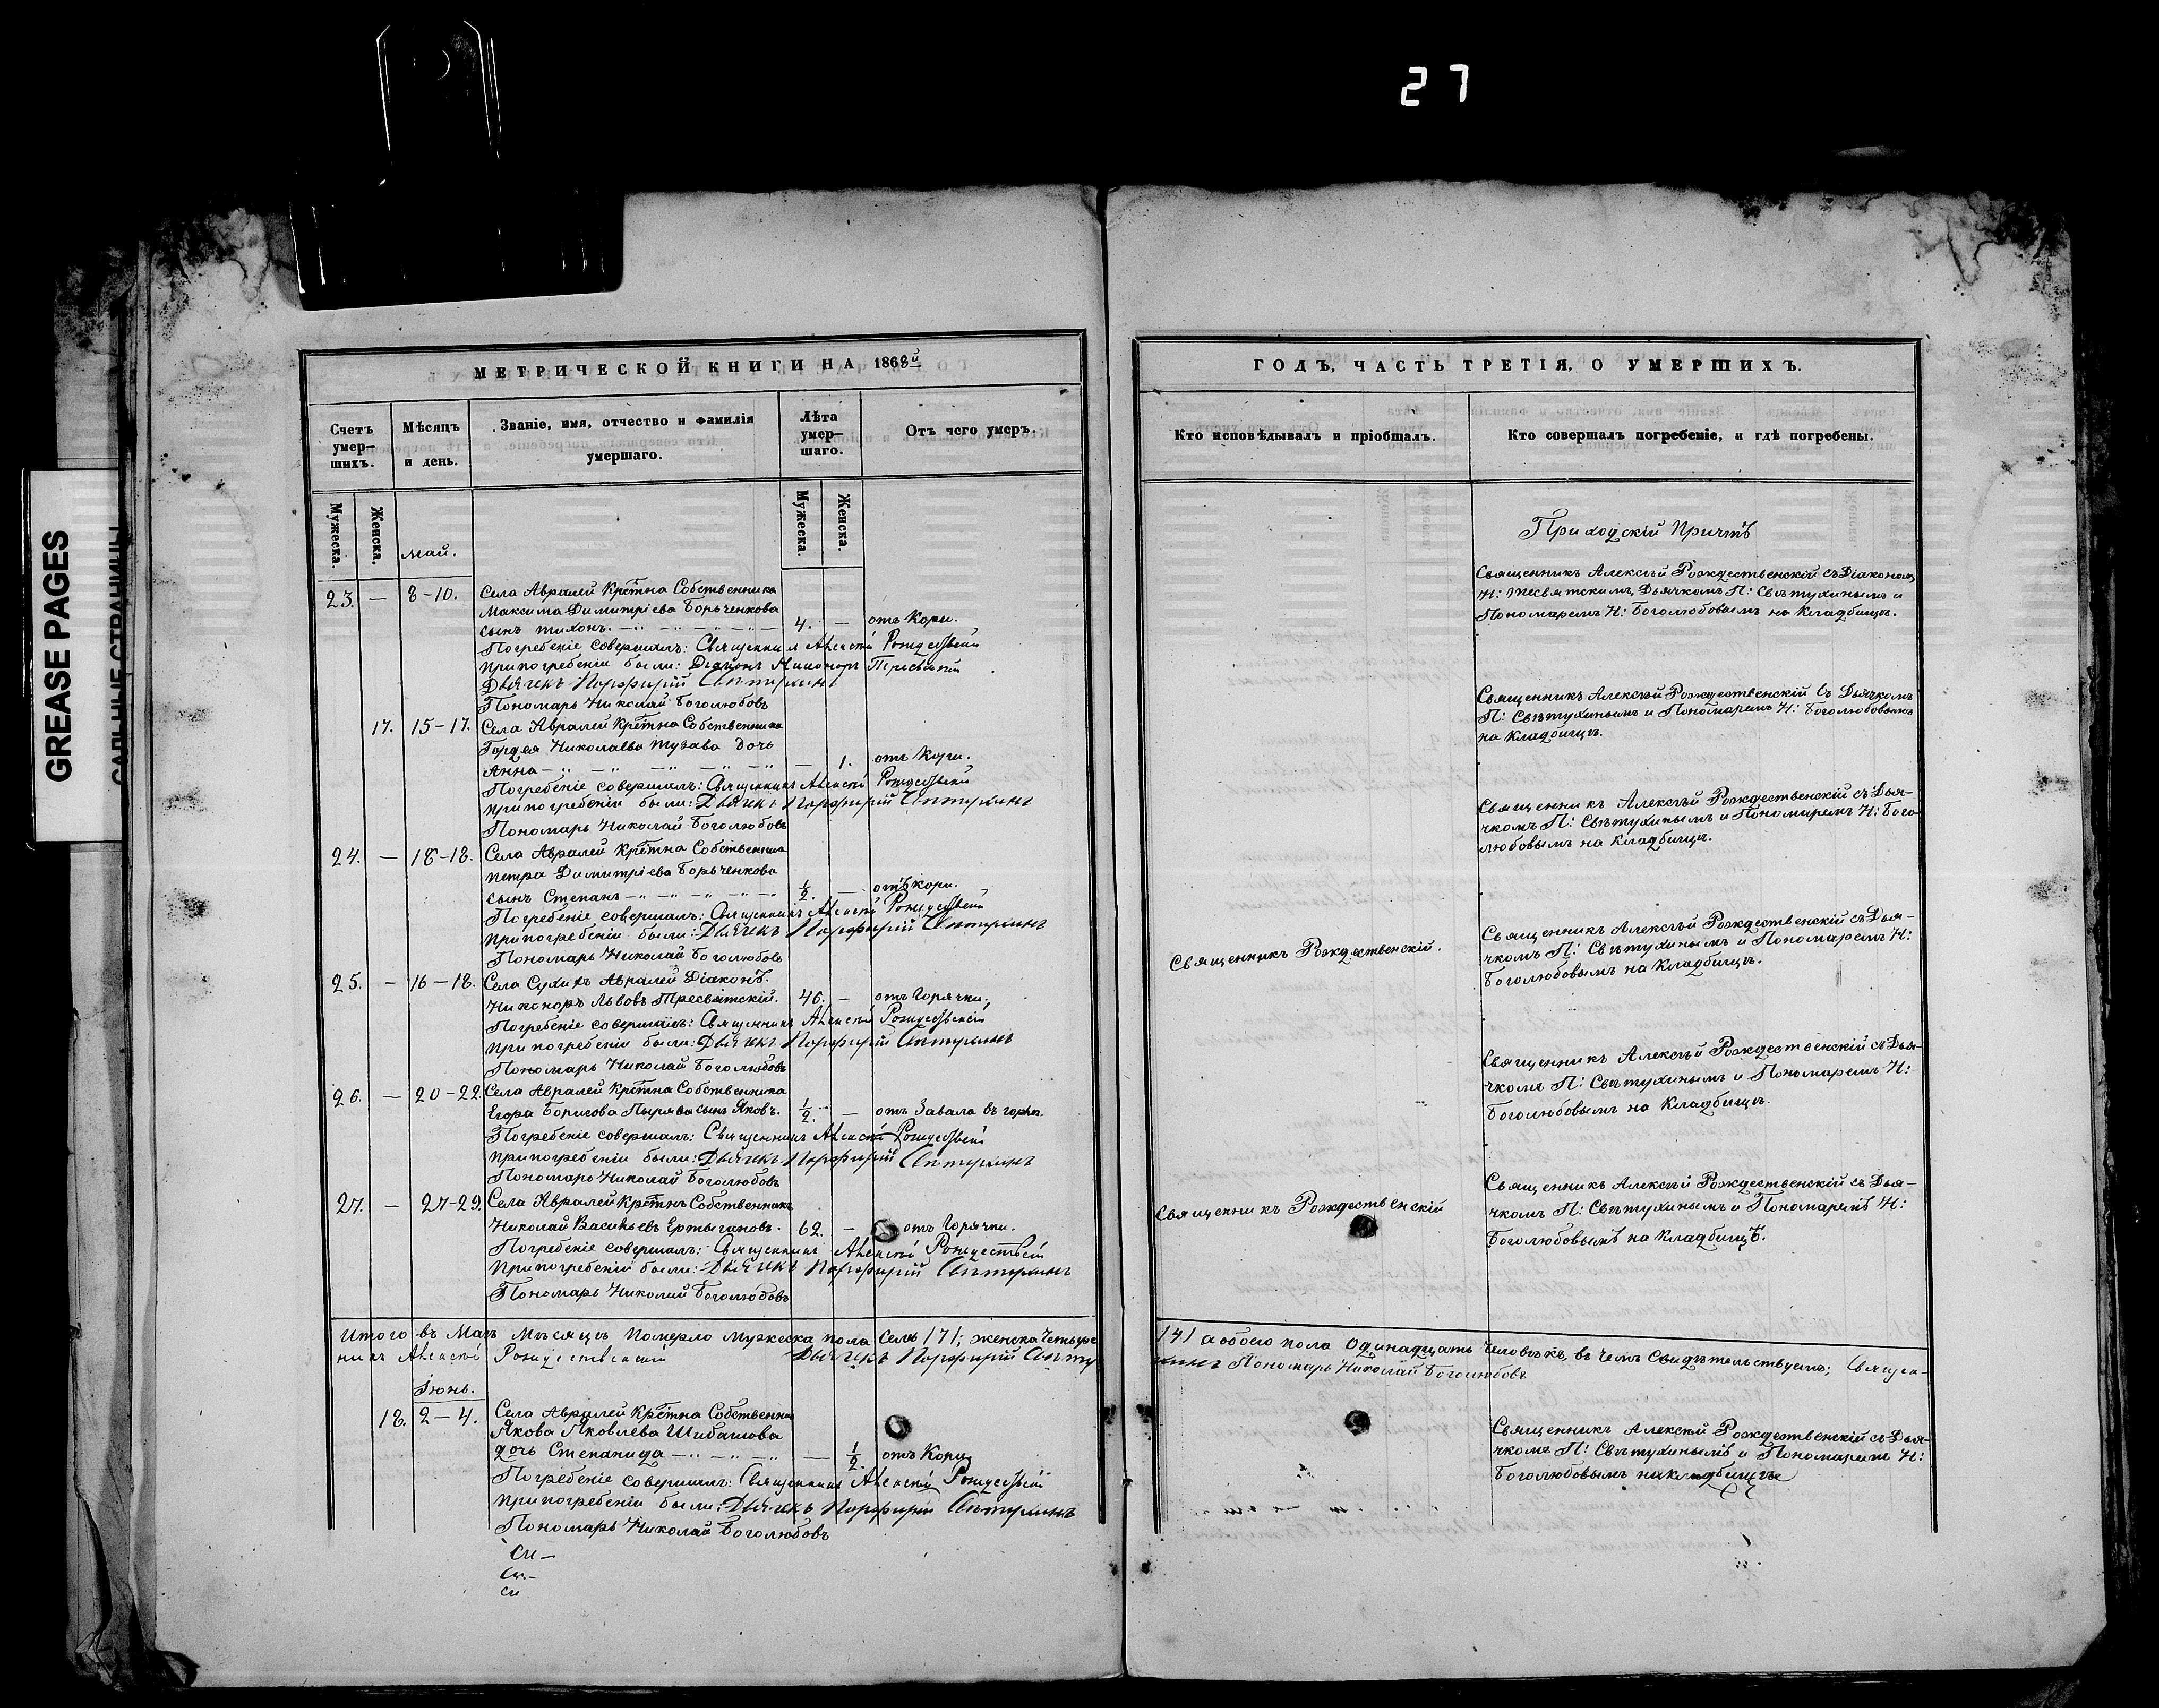 27
GREASE PAGES
МЕТРИЧЕСКОЙ КНИГИ НА 1868й
Счетъ умер—шихъ.
Мѣсяцъ и день.
Званіе, имя, отчество и фамилія умершаго.
Лѣта умер—шаго.
Отъ чего умеръ.
Мужеска.
Женска.
Май.
Мужеска.
Женска.
23. — 8-10. Села Авралей Крестна Собственника
Максима Димитріева Борьченкова
сынъ Тихонъ. 4. — отъ Кори.
Погребеніе совершалъ: Священникъ Алексѣй Рождественскій
При погребеніи были: Діаконъ Никоноръ Тресвятскій
Дьячекъ Порфирій Свѣтухинъ
Пономарь Николай Боголюбовъ
17. 15-17. Села Авралей Крестна Собственника
Гордея Николаева Тузава дочь
Анна — 1. отъ Кори.
Погребеніе совершалъ: Священникъ Алексѣй Рождественскій
При погребеніи были: Дьячекъ Порфирій Свѣтухинъ
Пономарь Николай Боголюбовъ
24. — 18-18. Села Авралей Крестна Собственника
Петра Димитріева Борьченкова
сынъ Степанъ ½. — отъ кори.
Погребеніе совершалъ: Священникъ Алексѣй Рождественскій
При погребеніи были: Дьячекъ Порфирій Свѣтухинъ
Пономарь Николай Боголюбовъ
25. — 16-18. Села Сухихъ Авралей Діаконъ.
Никоноръ Львовъ Тресвятскій. 46. — отъ Горячки.
Погребеніе совершалъ: Священникъ Алексѣй Рождественскій
При погребеніи были: Дьячекъ Порфирій Свѣтухинъ
Пономарь Николай Боголюбовъ
26. — 20-22. Села Авралей Крестна Собственника
Егора Борисова Пырява сынъ Яковъ. ½. — отъ Завала въ горлѣ.
Погребеніе совершалъ: Священникъ Алексѣй Рождественскій
При погребеніи были: Дьячекъ Порфирій Свѣтухинъ
Пономарь Николай Боголюбовъ
27. — 27-29. Села Авралей Крестнъ Собственникъ
Николай Васильевъ Ертыгановъ. 62. — отъ Горячки.
Погребеніе совершалъ: Священникъ Алексѣй Рождественскій
При погребеніи были: Дьячекъ Порфирій Свѣтухинъ
Пономарь Николай Боголюбовъ
Итого въ Маѣ Мѣсяцѣ Померло Мужеска пола Семь /7/; женска Четыре
никъ Алексѣй Рождественскій Дьячекъ Порфирій Свѣту
Іюнь.
18. 2-4. Села Авралей Крестна Собственника
Якова Яковлева Шибашова
дочь Степанида — ½. отъ Кори
Погребеніе совершалъ: Священникъ Алексѣй Рождественскій
При погребеніи были: Дьячекъ Порфирій Свѣтухинъ
Пономарь Николай Боголюбовъ
ГОДЪ, ЧАСТЬ ТРЕТІЯ, О УМЕРШИХЪ.
Кто исповѣдывалъ и пріобщалъ.
Кто совершалъ погребеніе, и гдѣ погребены.
Приходскій Причтъ
Священникъ Алексѣй Рождественскій съ Діакономъ
Н: Тресвятскимъ, Дьячкомъ П: Свѣтухинымъ и
Пономаремъ Н: Боголюбовымъ на Кладбищѣ.
Священникъ Алексѣй Рождественскій съ Дьячкомъ
П: Свѣтухинымъ и Пономаремъ Н: Боголюбовымъ
на Кладбищѣ.
Священникъ Алексѣй Рождественскій съ Дья-
чкомъ П: Свѣтухинымъ и Пономаремъ Н: Бого-
любовымъ на Кладбищѣ.
Священникъ Рождественскій.
Священникъ Алексѣй Рождественскій съ Дья-
чкомъ П: Свѣтухинымъ и Пономаремъ Н:
Боголюбовымъ на Кладбищѣ.
Священникъ Алексѣй Рождественскій съ Дья-
чкомъ П: Свѣтухинымъ и Пономаремъ Н:
Боголюбовымъ на Кладбищѣ.
Священникъ Рождественскій
Священникъ Алексѣй Рождественскій съ Дья-
чкомъ П: Свѣтухинымъ и Пономаремъ Н:
Боголюбовымъ на Кладбищѣ.
/4/ а обоего пола Одинадцать Человѣкъ, въ чемъ Свидѣтельствуемъ; Священ-
хинъ Пономарь Николай Боголюбовъ
Священникъ Алексѣй Рождественскій съ Дья-
чкомъ П: Свѣтухинымъ и Пономаремъ Н:
Боголюбовымъ на кладбищѣ